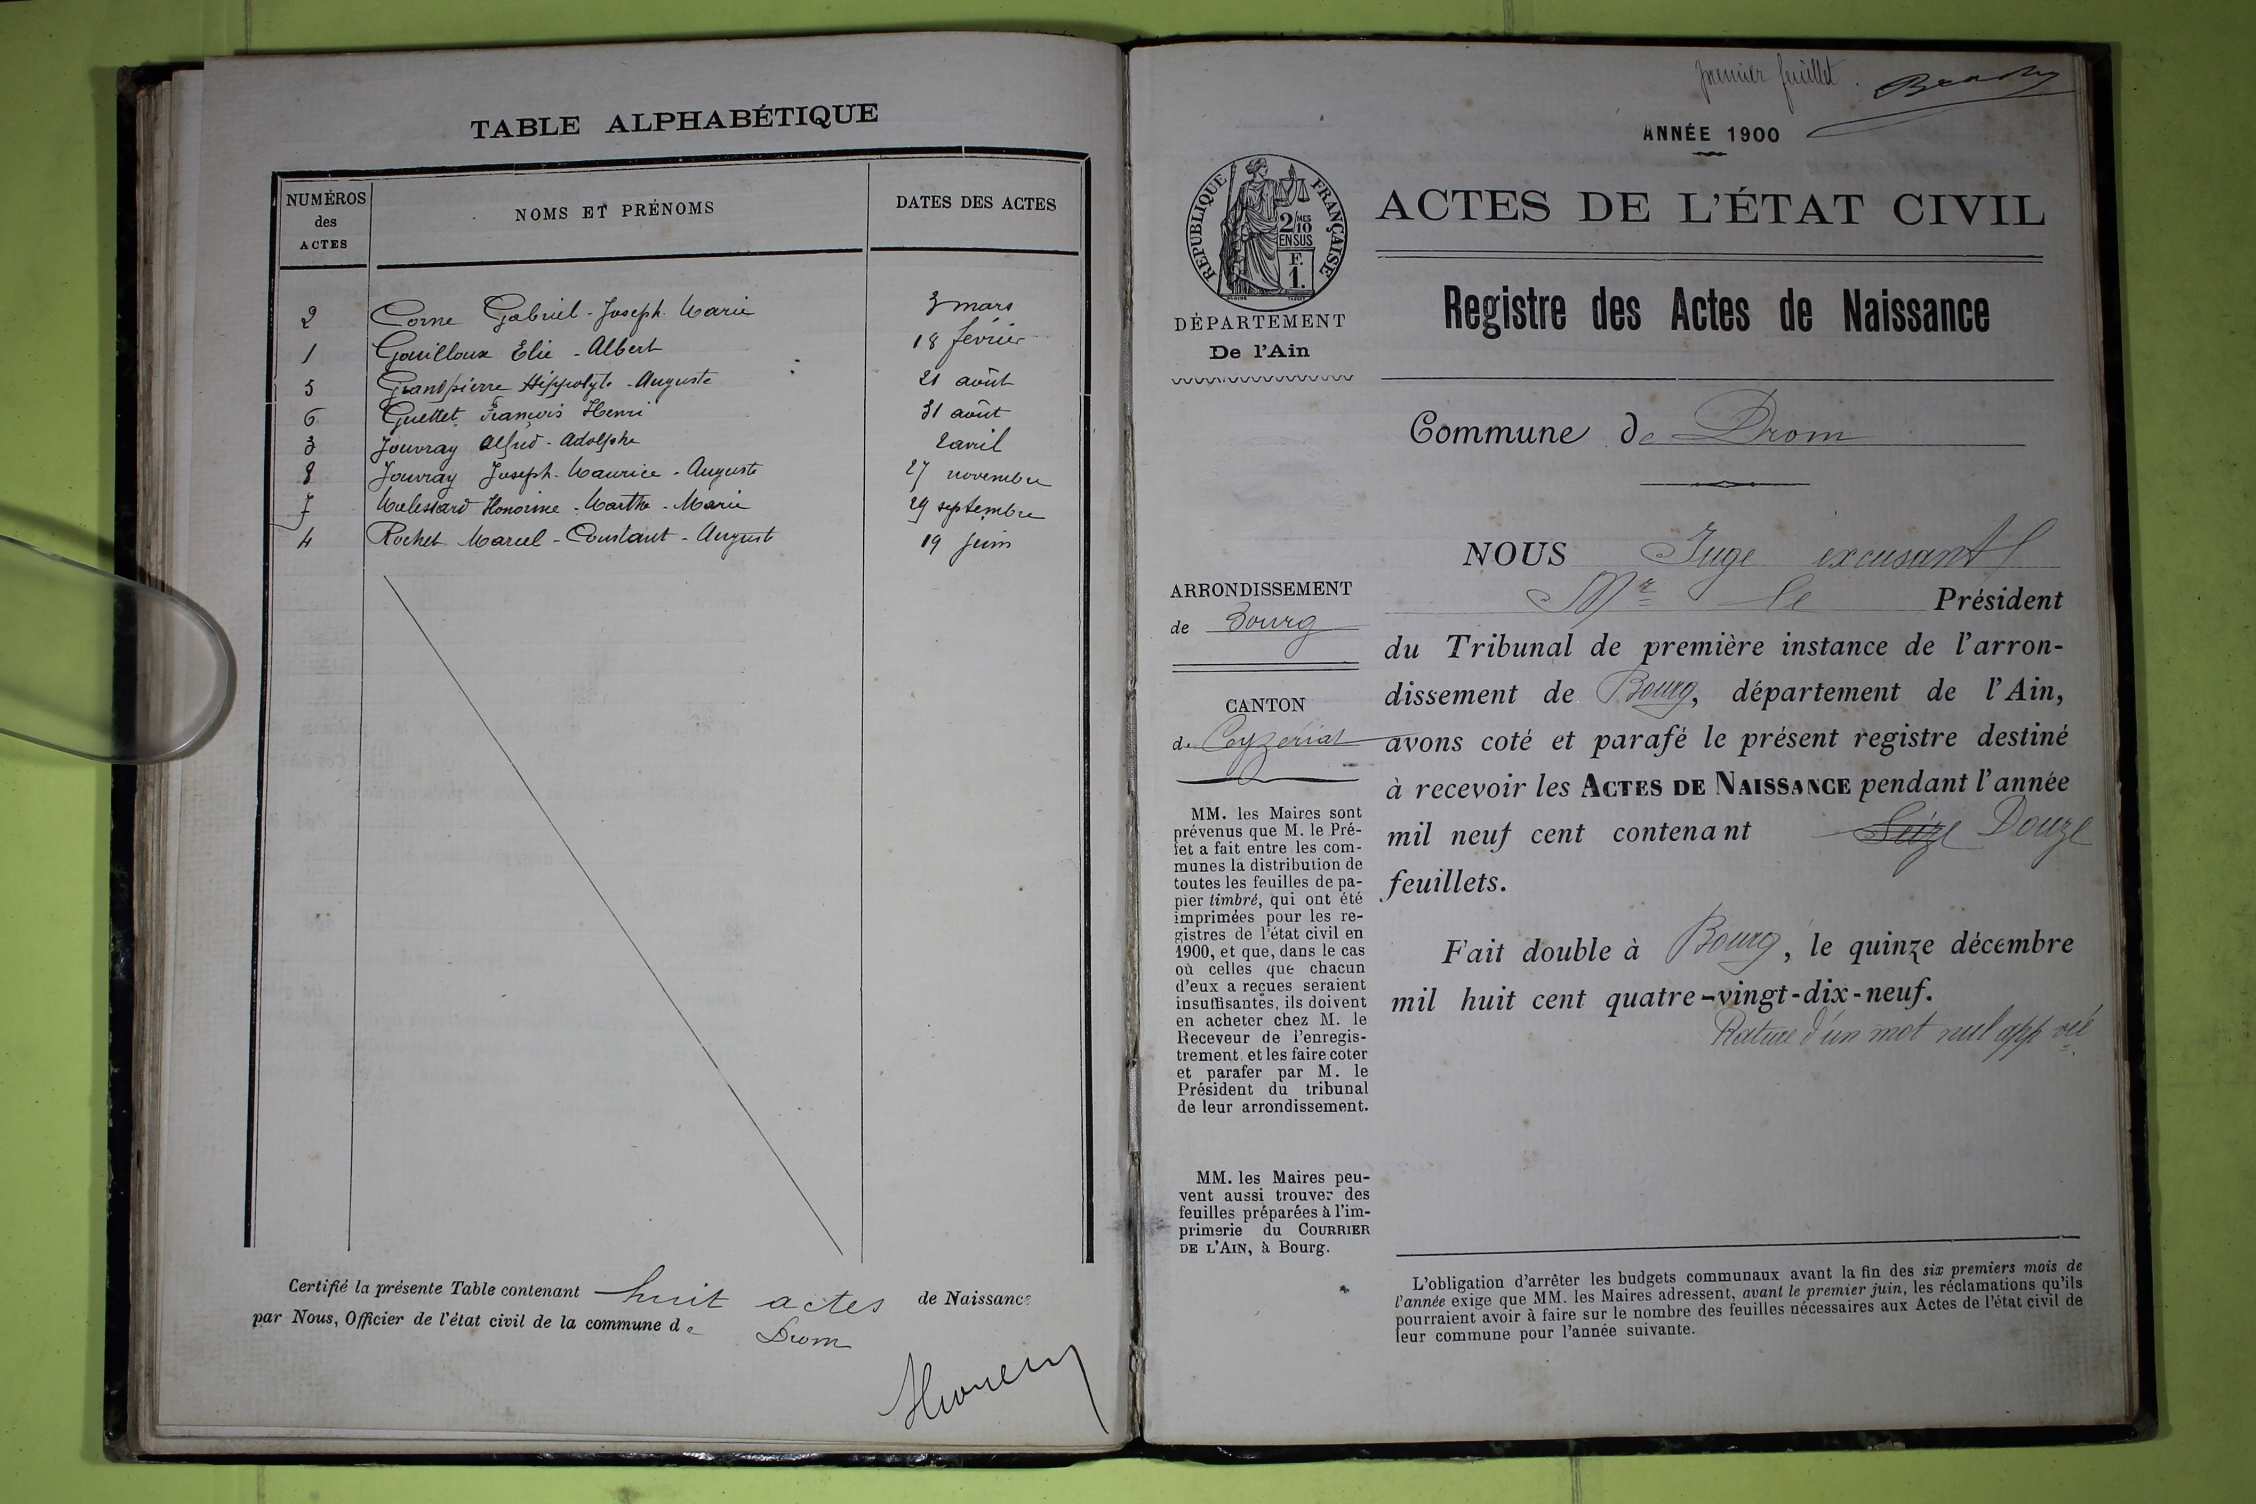 TABLE ALPHABÉTIQUE
NUMÉROS des ACTES
NOMS ET PRÉNOMS
DATES DES ACTES
2 Corne Gabriel-Joseph Marie 3 mars
1 Gouilloux Elie - Albert 18 février
5 Grandpierre Hippolyte - Auguste 21 août
6 Guettet François Henri 31 août
3 Jouvray Alfred - Adolphe 2 avril
8 Jouvray Joseph - Maurice - Auguste 27 novembre
7 Honorine - Marthe - Marie 29 septembre
4 Rochet Marcel - Constant - Auguste 19 juin
Certifié la présente Table contenant huit actes de Naissance
par Nous, Officier de l'état civil de la commune de Drom
premier feuillet.
ANNÉE 1900
RÉPUBLIQUE FRANÇAISE
2/10 MES
EN SUS
F.
1.
DÉPARTEMENT
De l'Ain
ACTES DE L'ÉTAT CIVIL
Registre des Actes de Naissance
Commune de Drom
ARRONDISSEMENT
de Bourg
CANTON
de Ceyzériat
MM. les Maires sont
prévenus que M. le Pré-
fet a fait entre les com-
munes la distribution de
toutes les feuilles de pa-
pier timbré, qui ont été
imprimées pour les re-
gistres de l'état civil en
1900, et que, dans le cas
où celles que chacun
d'eux a reçues seraient
insuffisantes, ils doivent
en acheter chez M. le
Receveur de l'enregis-
trement et les faire coter
et parafer par M. le
Président du tribunal
de leur arrondissement.
MM. les Maires peu-
vent aussi trouver des
feuilles préparées à l'im-
primerie du COURRIER
DE L'AIN, à Bourg.
NOUS Juge excusant
Mr le Président
du Tribunal de première instance de l'arron-
dissement de Bourg, département de l'Ain,
avons coté et parafé le présent registre destiné
à recevoir les ACTES DE NAISSANCE pendant l'année
mil neuf cent contenant Seize Douze
feuillets.
Fait double à Bourg, le quinze décembre
mil huit cent quatre-vingt-dix-neuf.
Rature d'un mot nul app vée
L'obligation d'arrêter les budgets communaux avant la fin des six premiers mois de
l'année exige que MM. les Maires adressent, avant le premier juin, les réclamations qu'ils
pourraient avoir à faire sur le nombre des feuilles nécessaires aux Actes de l'état civil de
leur commune pour l'année suivante.